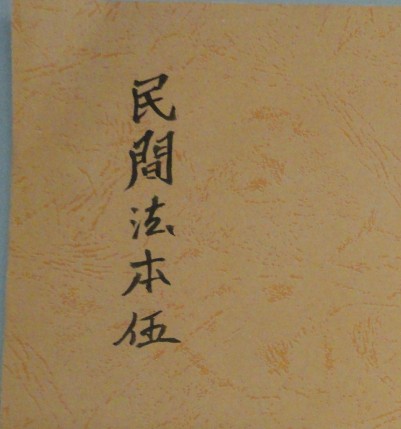 民間法本伍